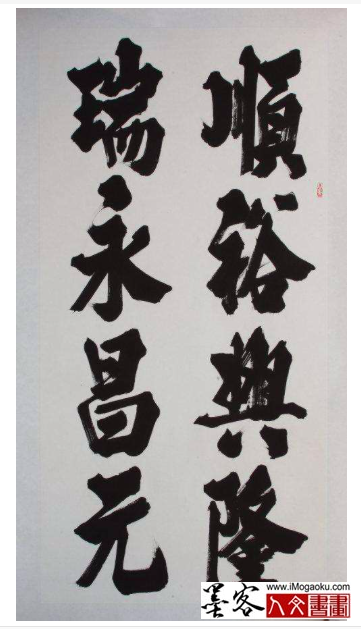 順裕興隆
瑞永昌元
墨客
www.iMogaoku.com
人文書畫